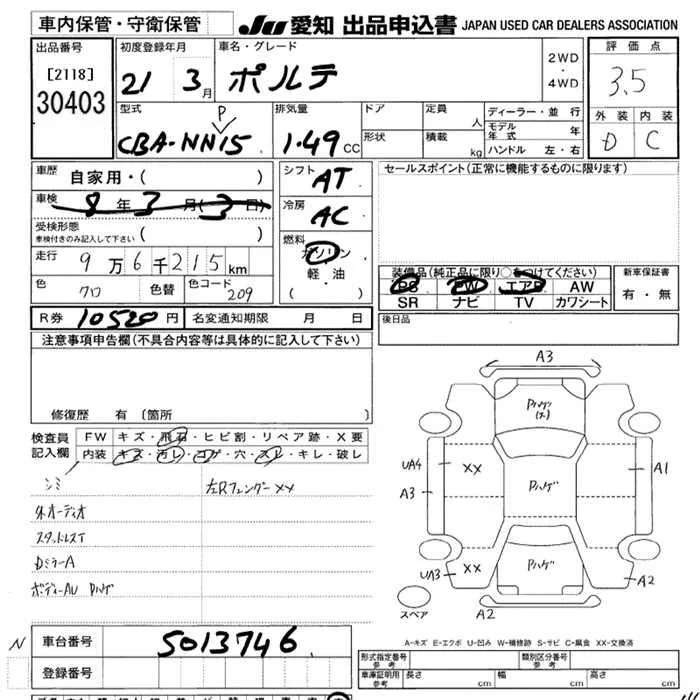 車内保管・守衛保管
JU 愛知 出品申込書 JAPAN USED CAR DEALERS ASSOCIATION
出品番号
[2118]
30403
初度登録年月
21 3月
車名・グレード
ポルテ
2WD
・
4WD
評価点
3.5
外装 内装
D C
型式
P
CBA-NN15
排気量
1.49 CC
ドア
形状
定員 人
積載 kg
ディーラー・並行
モデル年式 年
ハンドル 左・右
車歴
自家用・( )
車検
8年3月(3日)
受検形態
車検付きのみ記入して下さい ( )
走行
9万6千215km
色
クロ
色替
色コード
209
シフト
AT
冷房
AC
燃料
ガソリン
軽・油
( ・ )
セールスポイント(正常に機能するものに限ります)
装備品(純正品に限り○をつけてください)
PS PW エアB AW
SR ナビ TV カワシート
新車保証書
有・無
R券 10520円
名変通知期限 月 日
後日品
注意事項申告欄(不具合内容等は具体的に記入して下さい)
修復歴 有 〔箇所
検査員
記入欄
FW キズ・飛石・ヒビ割・リペア跡・X要
内装 キズ・汚レ・コゲ・穴・スレ・キレ・破レ
シミ
左Rフェンダーxx
外オーディオ
スタットレスT
DミラーA
ボディーAU Pハゲ
A3
Pハゲ
UA4
A3
XX
Pハゲ
A1
UA3
XX
Pハゲ
A2
A2
スペア
A-キズ E-エクボ U-凹み W-補修跡 S-サビ C-腐食 XX-交換済
N
車台番号
5013746
登録番号
形式指定番号
参考
類別区分番号
参考
車庫証明用
参考
長さ cm
幅 cm
高さ cm